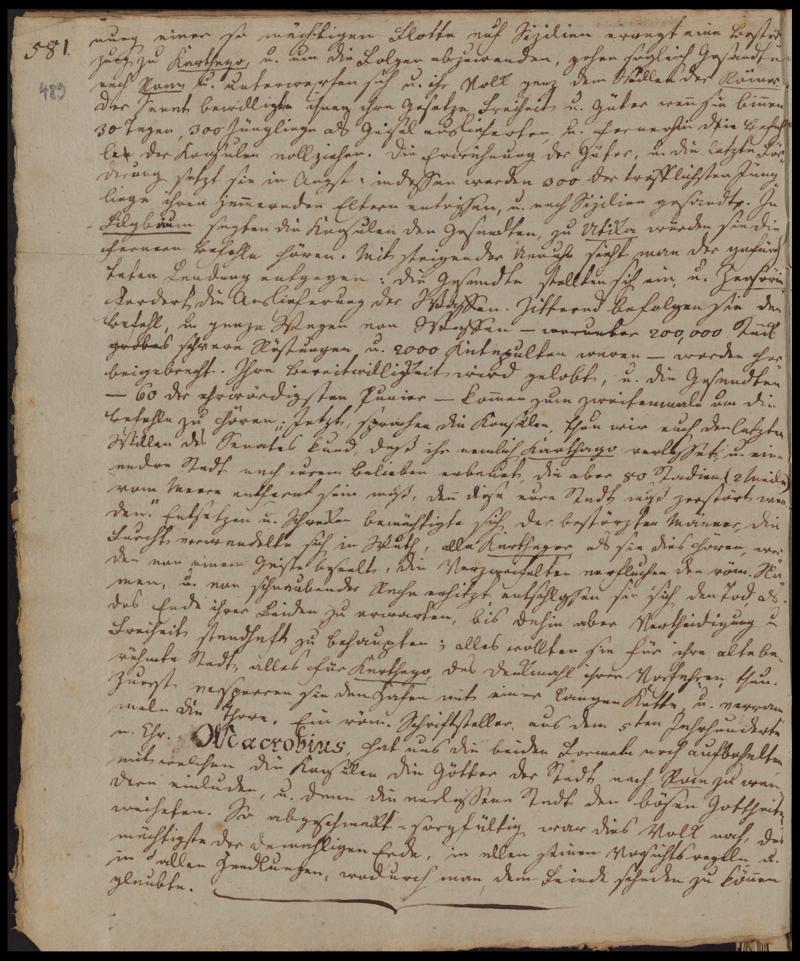 581.
489
nung einer so mächtigen Flotte auf Sizilien erregt eine Bestür
zung zu Karthago, u. um die Folgen abzuwenden, gehen sogleich Gesandte
nach Rom, u. unterwerfen sich u. ihr Volk ganz dem Willen der Römer.
Der Senat bewilligte ihnen ihre Gesetze, Freiheit u. Güter wenn sie binnen
30 Tagen, 300 Jünglinge als Geisel auslieferten, u. fernerhin die Befeh
le der Konsulen vollziehen. Die Erwähnung der Güter, u. die letzte För
derung setzt sie in Angst: indessen werden 300 der trefflichsten Jüng
linge ihren jammernden Eltern entrissen, u. nach Sizilien gesandt. In
Lilybäum sagten die Konsulen den Gesandten, zu Utika würden sie die
fernern Befehle hören. Mit steigender Unruhe sieht man der gefürch
teten Landung entgegen: die Gesandte stellten sich ein, u. Zensorin
fordert die Auslieferung der Waffen. Zitternd befolgen sie den
Befehl, u. ganze Wagen von Waffen — worunter 200,000 Stück
schwere Rüstungen u. 2000 Katapulten waren — werden her
beigebracht. Ihre Bereitwilligkeit wird gelobt, u. die Gesandten
— 60 der ehrwürdigsten Punier — kommen zum zweitenmale um die
Befehle zu hören. „Jetzt, sprachen die Konsulen, thun wir euch den letzten
Willen des Senates kund, daß ihr nemlich Karthago verlasset, u. eine
andre Stadt nach eurem Belieben erbauet, die aber 80 Stadien (2 Meilen)
vom Meere entfernt sein muß, denn diese eure Stadt muß zerstört wer
den." Entsetzen u. Schrecken bemächtigte sich der bestürzten Männer, die
Furcht verwandelte sich in Wuth, alle Karthager als sie dies hören, wer
den von einem Geiste beseelt, die Verzweifelten verfluchen den röm. Na
men, u. von schnaubender Rache erhitzt entschlossen sie sich, den Tod als
das Ende ihrer Leiden zu erwarten, bis dahin aber Vertheidigung u
Freiheit standhaft zu behaupten; alles wollten sie für ihre alte be
rühmte Stadt, alles für Karthago, das Denkmahl ihrer Vorfahren, thun.
Zuerst versperren sie den Hafen mit einer langen Kette, u. verram
meln die Thore. Ein röm. Schriftsteller aus dem 5ten Jahrhunderte
n. Chr. Macrobius, hat uns die beiden Formeln noch aufbehalten,
mit welchen die Konsulen die Götter der Stadt nach Rom zu wan
dern einluden, u. dann die verlassene Stadt den bösen Gottheiten
weiheten. So abgeschmackt-sorgfältig war dies Volk noch, das
mächtigste der damahligen Erde, in allen seinen Vorsichtsregeln u.
in allen Handlungen, wodurch man dem Feinde schaden zu können
glaubte.